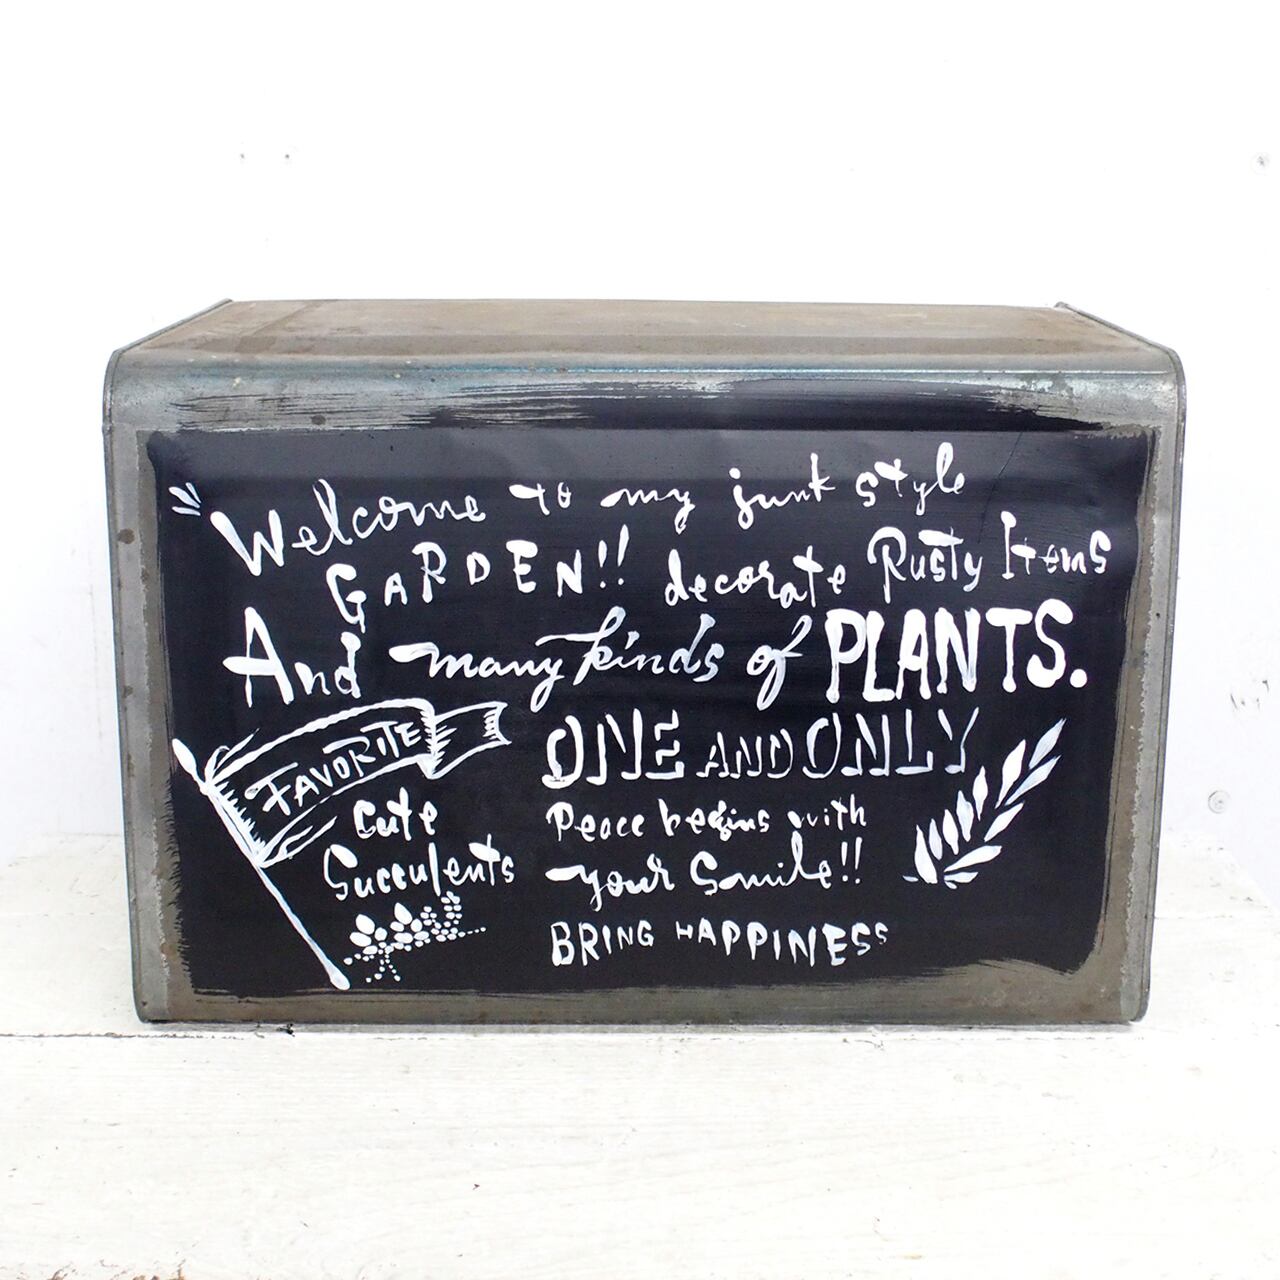 Welcome to my junk style
GARDEN!! decorate Rusty Items
And many kinds of PLANTS.
FAVORITE
Cute
Succulents
ONE AND ONLY
Peace begins with
your Smile!!
BRING HAPPINESS